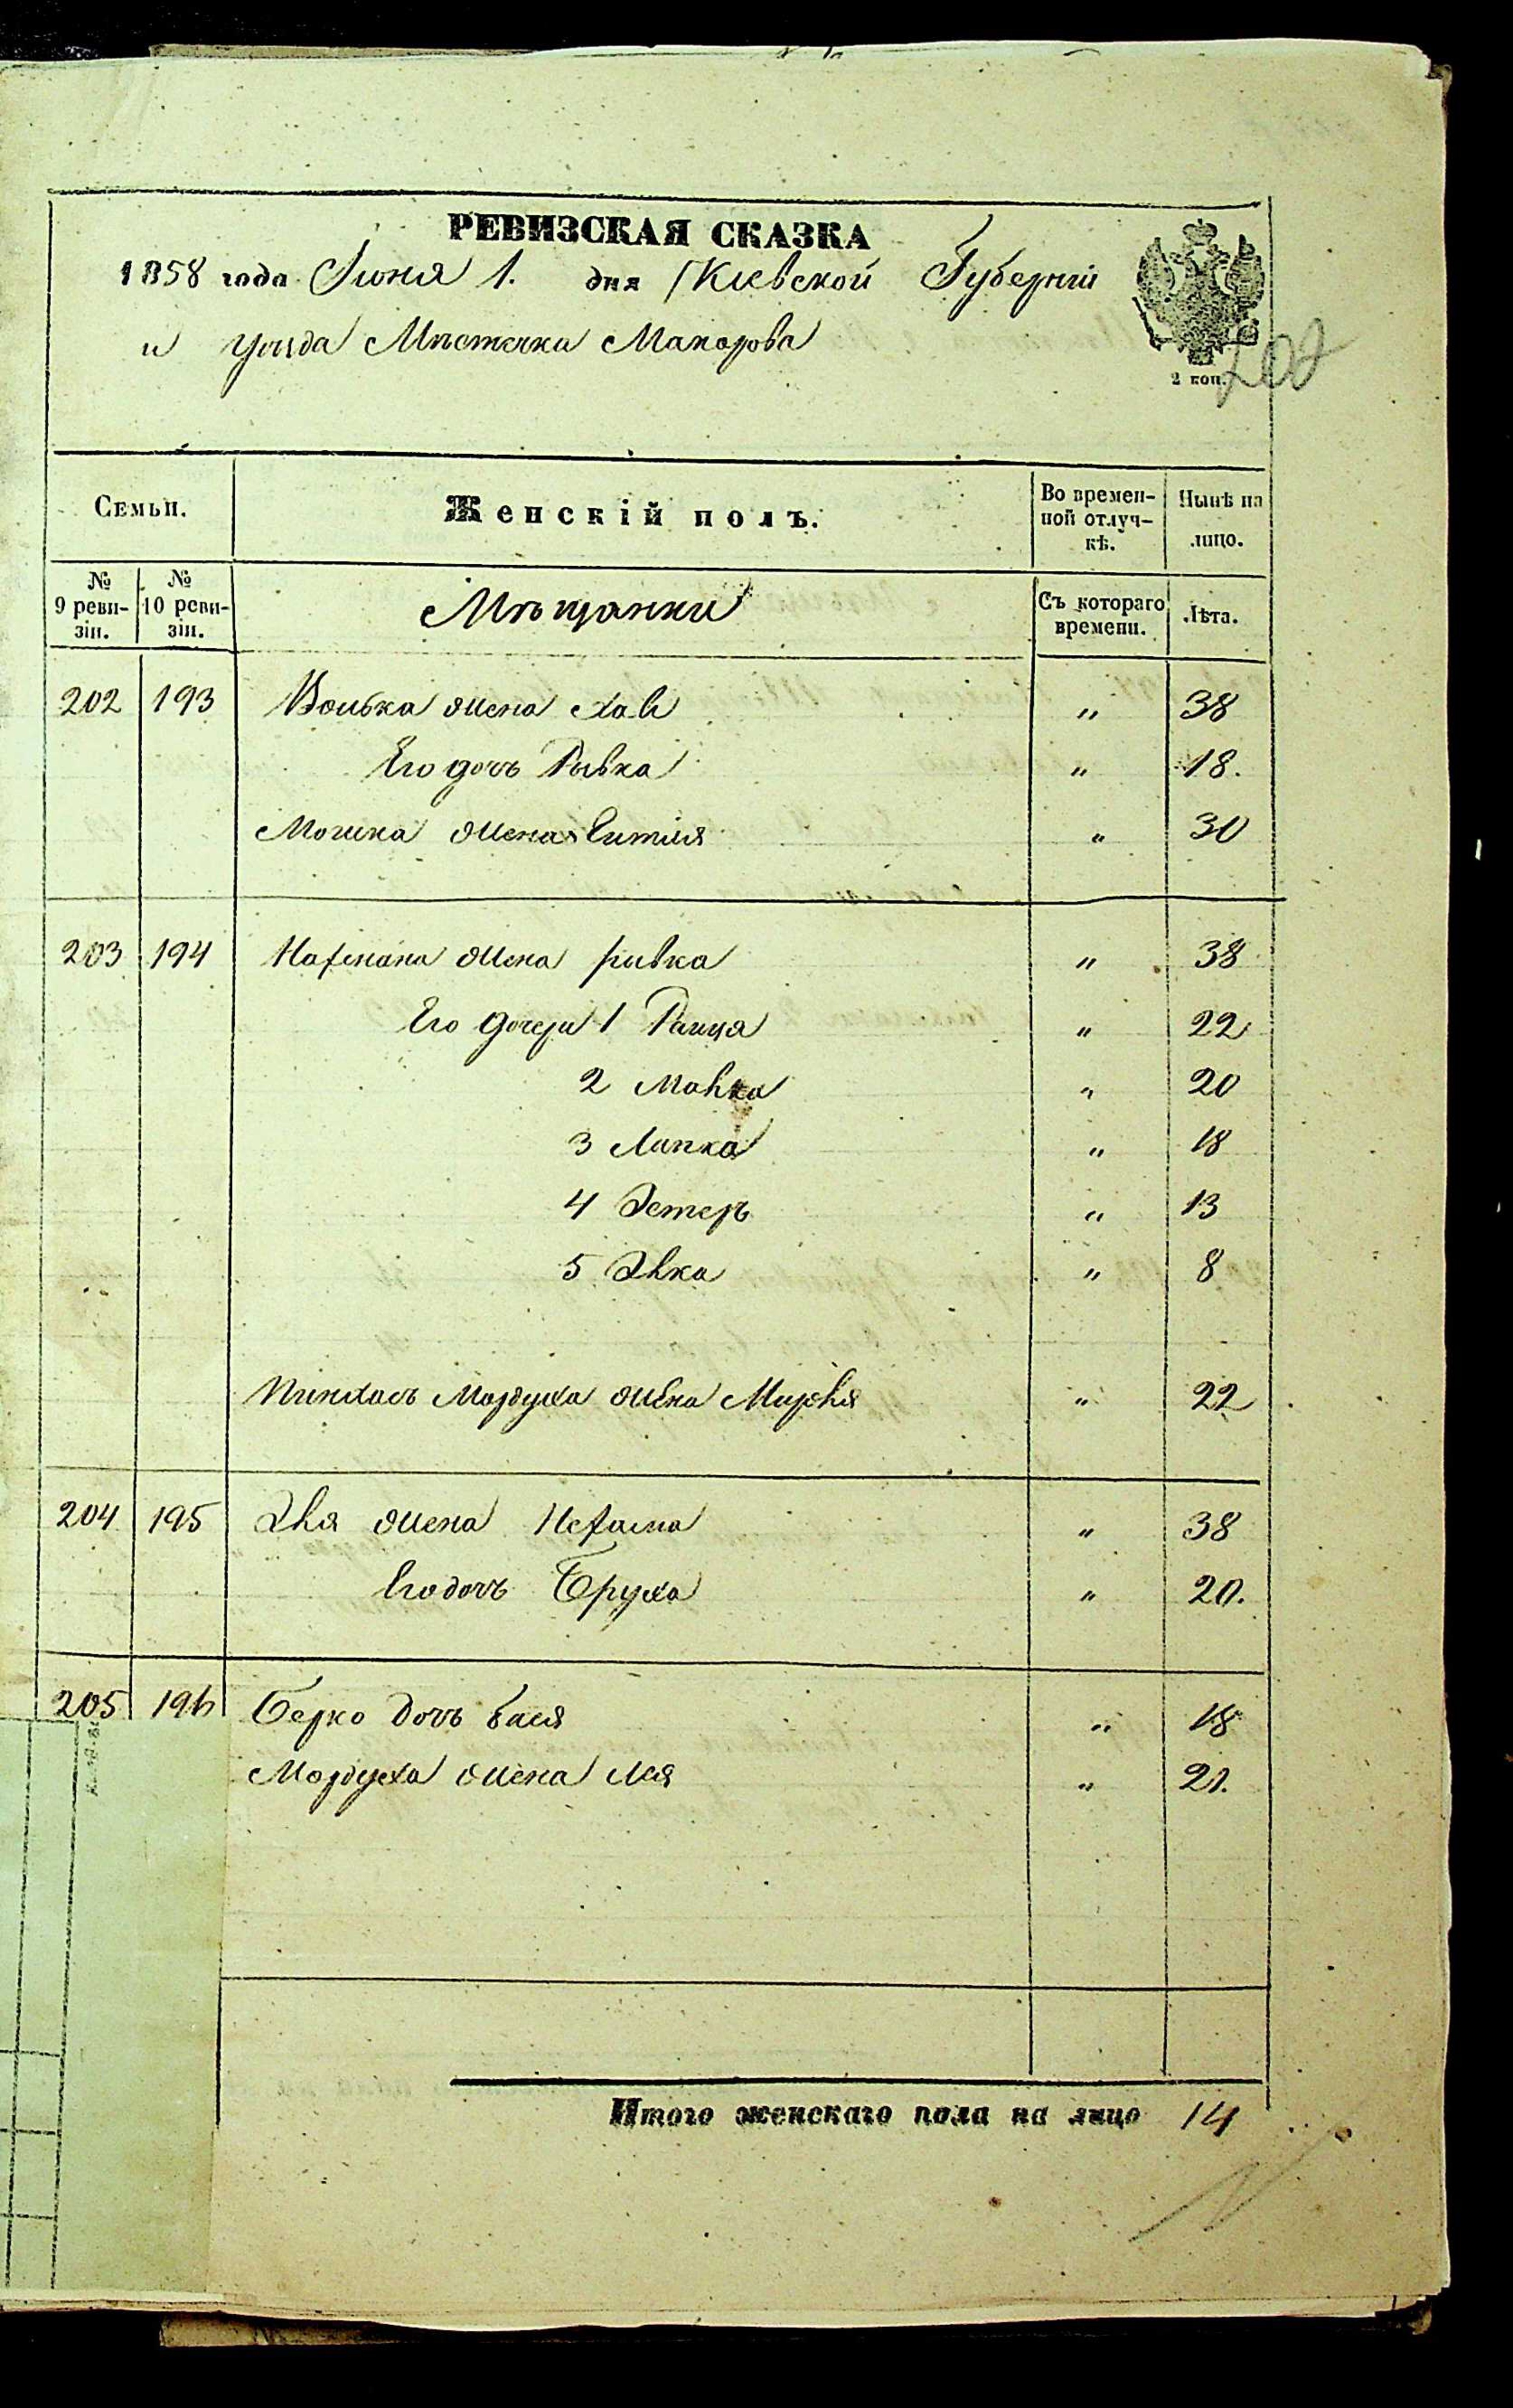 РЕВИЗСКАЯ СКАЗКА
1858 года Іюня 1. дня Кіевской Губерніи
и уѣзда Мѣстечка Макарова
2 коп.
202
Семьи.
Женскій полъ.
Во времен-
ной отлуч-
кѣ.
Нынѣ на
лицо.
№
9 реви-
зіи.
№
10 реви-
зіи.
Мѣщанки
Съ котораго
времени.
Лѣта.
202 193 жена " 38
Его дочь Рывка " 18.
Мошка жена " 30
203 194 жена Рывка " 38
Его дочери 1 " 22
2 Малка " 20
3 " 18
4 Эстеръ " 13
5 " 8
Пинхась Мордуха жена " 22
204 195 жена " 38
Его дочь Бруха " 20.
205 196 Берко дочь Бася " 18
Мордуха жена Лея " 21.
Итого женскаго пола на лицо 14